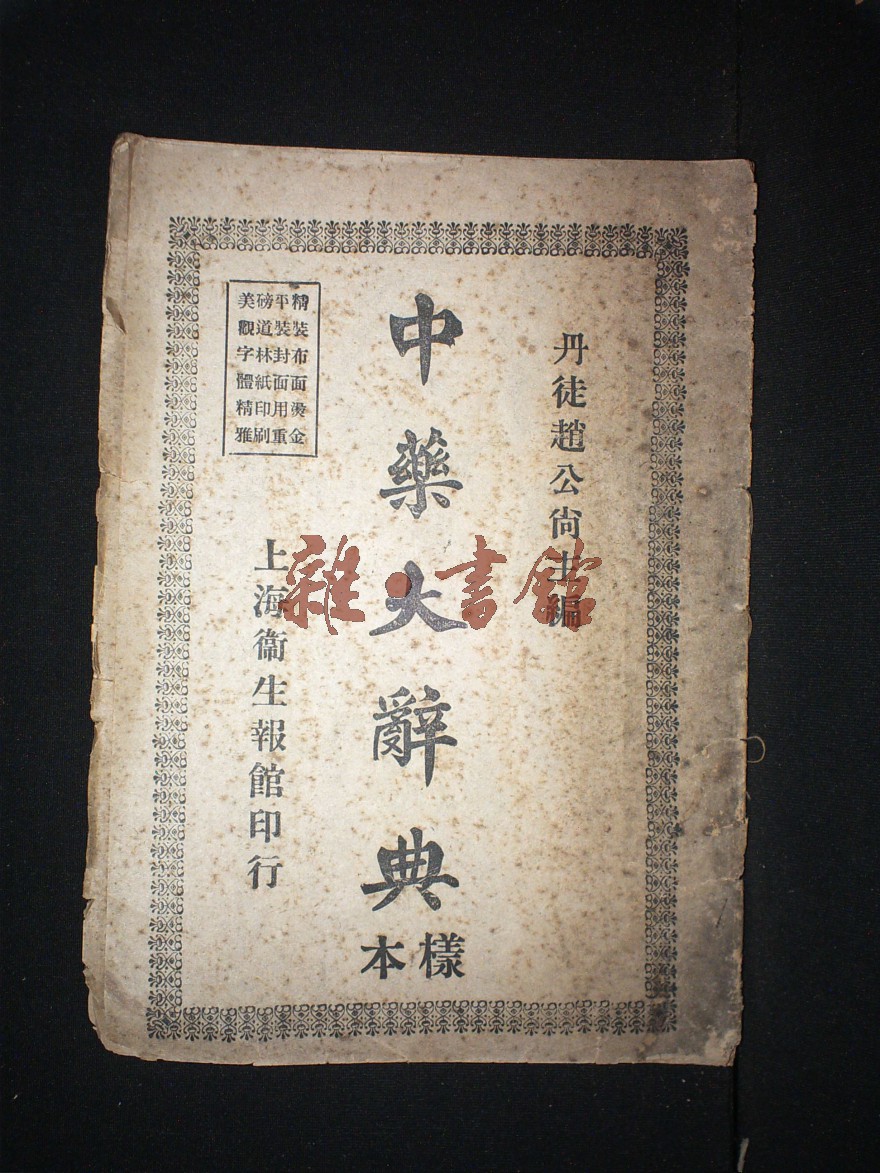 丹徒趙公尙主編
中藥大辭典
樣本
精裝布面燙金
平裝封面用重
磅道林紙印刷
美觀字體精雅
上海衞生報館印行
雜·書館